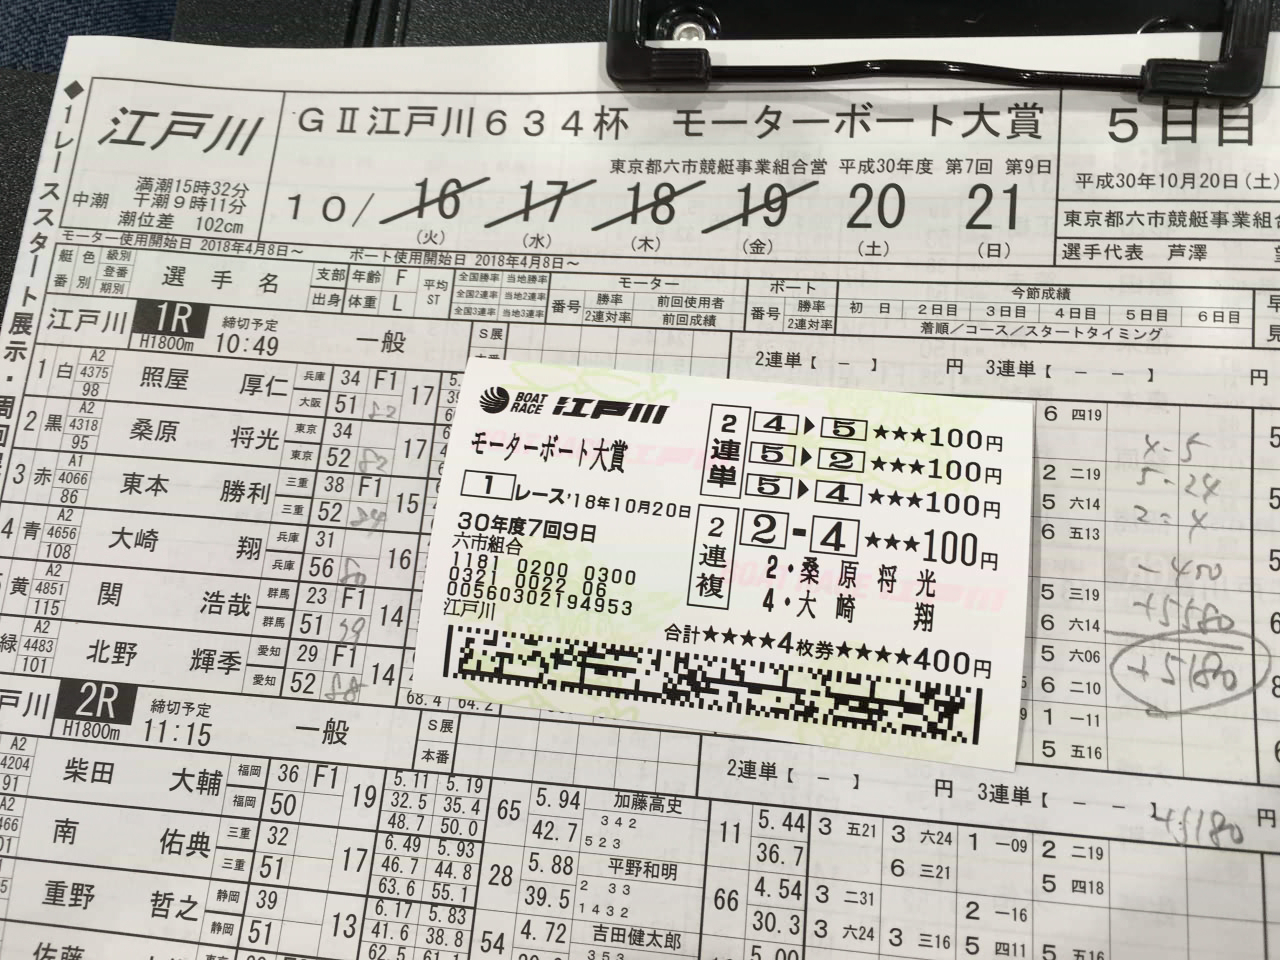 ◆1レーススタート展示・周回展
江戸川
満潮15時32分
中潮 干潮9時11分
潮位差 102cm
GⅡ江戸川634杯 モーターボート大賞
東京都六市競艇事業組合営 平成30年度 第7回 第9日
10/ 16 17 18 19 20 21
(火) (水) (木) (金) (土) (日)
5日目
平成30年10月20日(土)
東京都六市競艇事業組合
選手代表 芦澤 望
モーター使用開始日 2018年4月8日~ ボート使用開始日 2018年4月8日~
艇番 色別 級別 登番 期別 選手名 支部 出身 年齢 体重 F L 平均ST
全国勝率 当地勝率
全国2連率 当地2連率
全国3連率 当地3連率
モーター
番号 勝率 2連対率 前回使用者 前回成績
ボート
番号 勝率 2連対率
今節成績
初日 2日目 3日目 4日目 5日目 6日目
着順/コース/スタートタイミング
江戸川 1R 締切予定 10:49 H1800m 一般 S展
2連単【 - 】 円 3連単【 - - 】 円
1 白 A2 4375 98 照屋 厚仁 兵庫 大阪 34 51 F1 17
2 黒 A2 4318 95 桑原 将光 東京 東京 34 52 17
3 赤 A1 4066 86 東本 勝利 三重 三重 38 52 F1 15
4 青 A2 4656 108 大崎 翔 兵庫 兵庫 31 56 16
黄 A2 4851 115 関 浩哉 群馬 群馬 23 51 F1 14
緑 A2 4483 101 北野 輝季 愛知 愛知 29 52 F1 14
68.4 64.2
BOAT RACE 江戸川
モーターボート大賞
1 レース'18年10月20日
30年度7回9日
六市組合
1181 0200 0300
0321 0022 06
00560302194953
江戸川
2連単
4▶5★★★100円
5▶2★★★100円
5▶4★★★100円
2連複
2-4★★★100円
2・桑原将光
4・大崎 翔
合計★★★★4枚券★★★★400円
6 四19
2 二19
5 六14
6 五13
5 三19
6 六14
5 六06
6 二10
1 一11
5 五16
4-5
5-24
2=4
-400
+5580
+5180
戸川 2R 締切予定 11:15 H1800m 一般 S展 本番
2連単【 - 】 円 3連単【 - - 】 円
A2 4204 91 柴田 大輔 福岡 福岡 36 50 F1 19
5.11 5.19
32.5 35.4
48.7 50.0
65 5.94 42.7 加藤高史 342 523
11 5.44 36.7
3 五21 3 六24 1 一09 2 二19
6 三21 5 四18
南 佑典 三重 三重 32 51 17
6.49 5.93
46.7 44.8
63.6 55.1
28 5.88 39.5 平野和明 2 33 1432
66 4.54 30.3
3 二31 2 一16
3 六24 3 三16 5 四11 5 五16
重野 哲之 静岡 静岡 39 51 13
6.17 5.83
41.6 38.8
62.5 61.1
54 4.72 吉田健太郎 353
5.00
佐藤